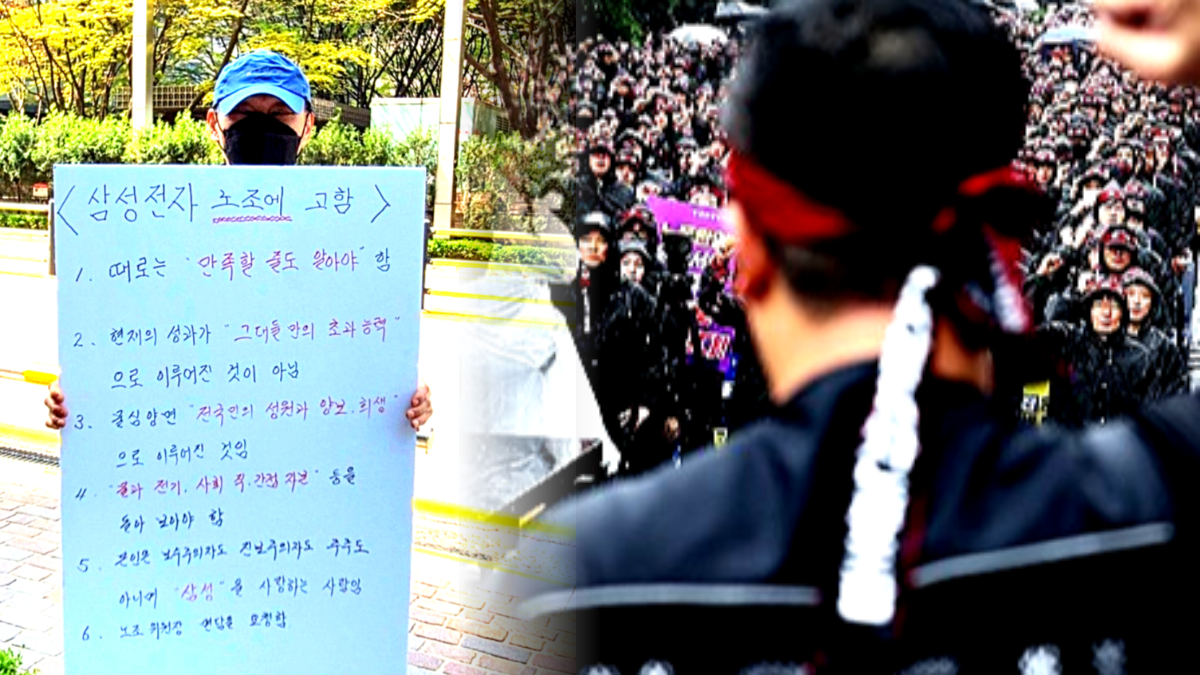 <삼성전자 노조에 고함>
1. 때로는 "만족할 줄도 알아야" 함
2. 현재의 성과가 "그대들만의 초과능력"
으로 이루어진 것이 아님
3. 물심양면 "전국민의 성원과 양보.희생"
으로 이루어진 것임
4. "물과 전기, 사회 직.간접 자본" 등을
돌아 보아야 함
5. 본인은 보수주의자도 진보주의자도 주주도
아니며 "삼성"을 사랑하는 사람임
6. 노조 위원장 면담을 요청함